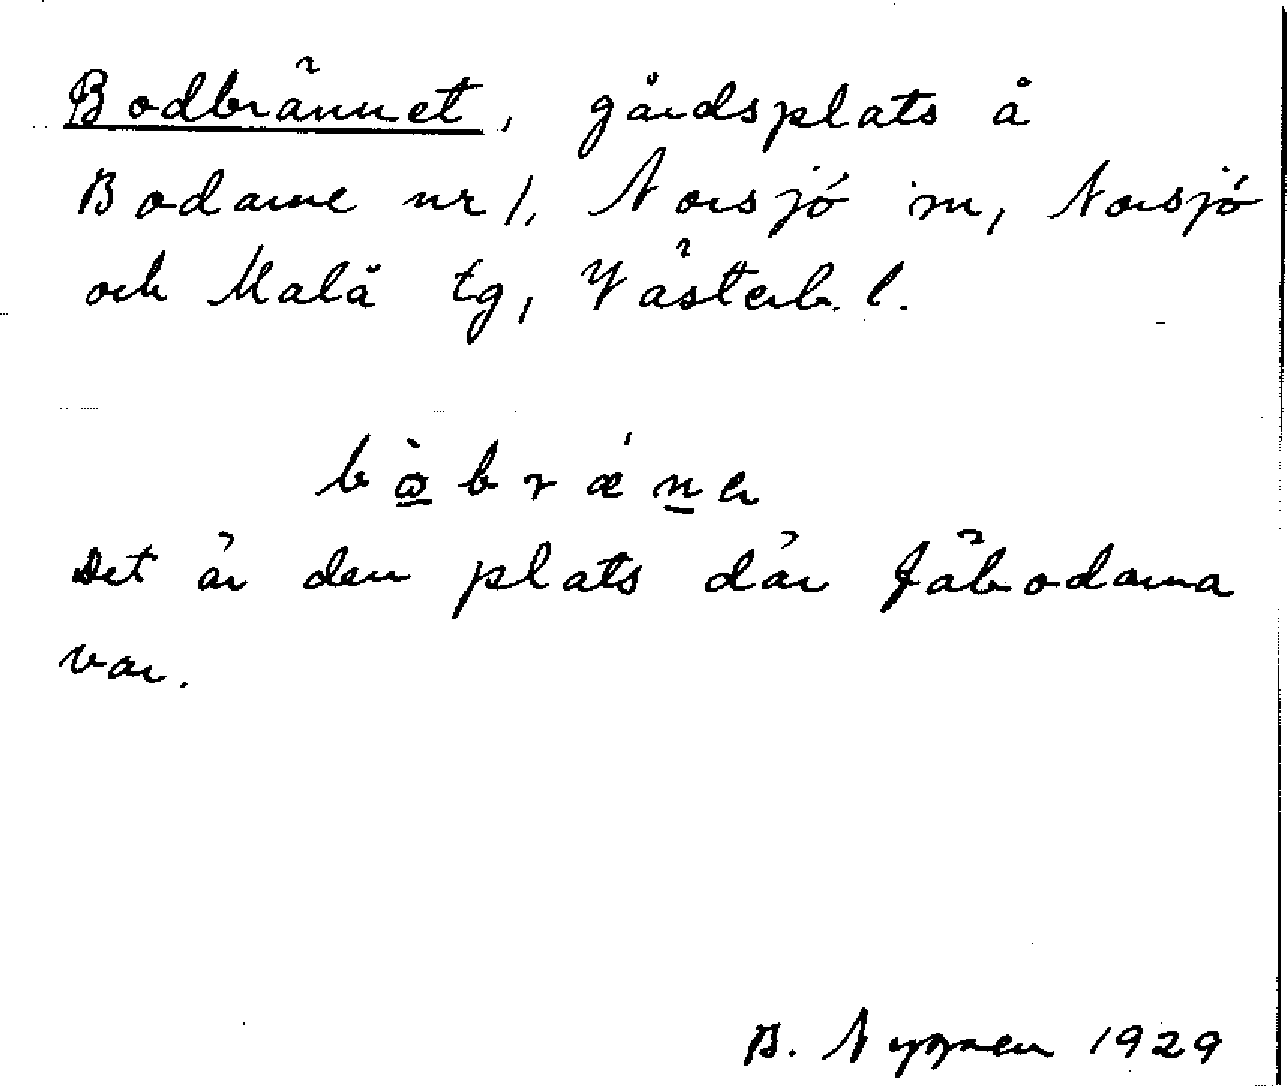 Bodbrännet, gårdsplats å
Bodarne nr 1, Norsjö sn, Norsjö
och Malå tg, Västerb. l.
bɷ̀brǽna
Det är den plats där fäbodarna
var.
B. Nygren 1929